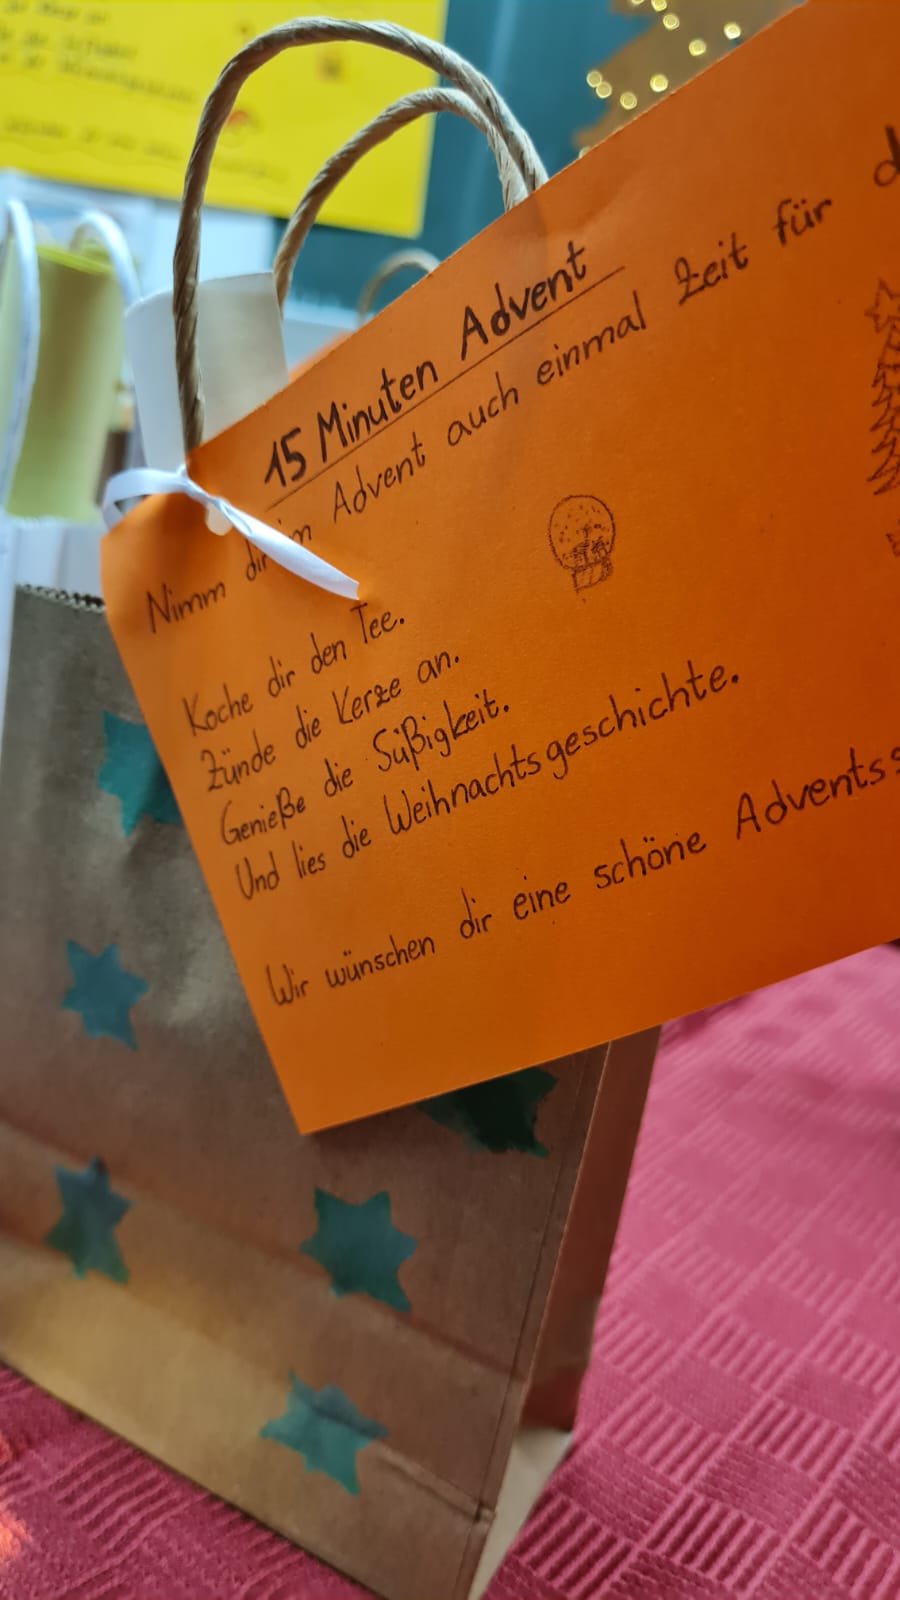 15 Minuten Advent
Nimm dir im Advent auch einmal Zeit für d
Koche dir den Tee.
Zünde die Kerze an.
Genieße die Süßigkeit.
Und lies die Weihnachtsgeschichte.
Wir wünschen dir eine schöne Advents